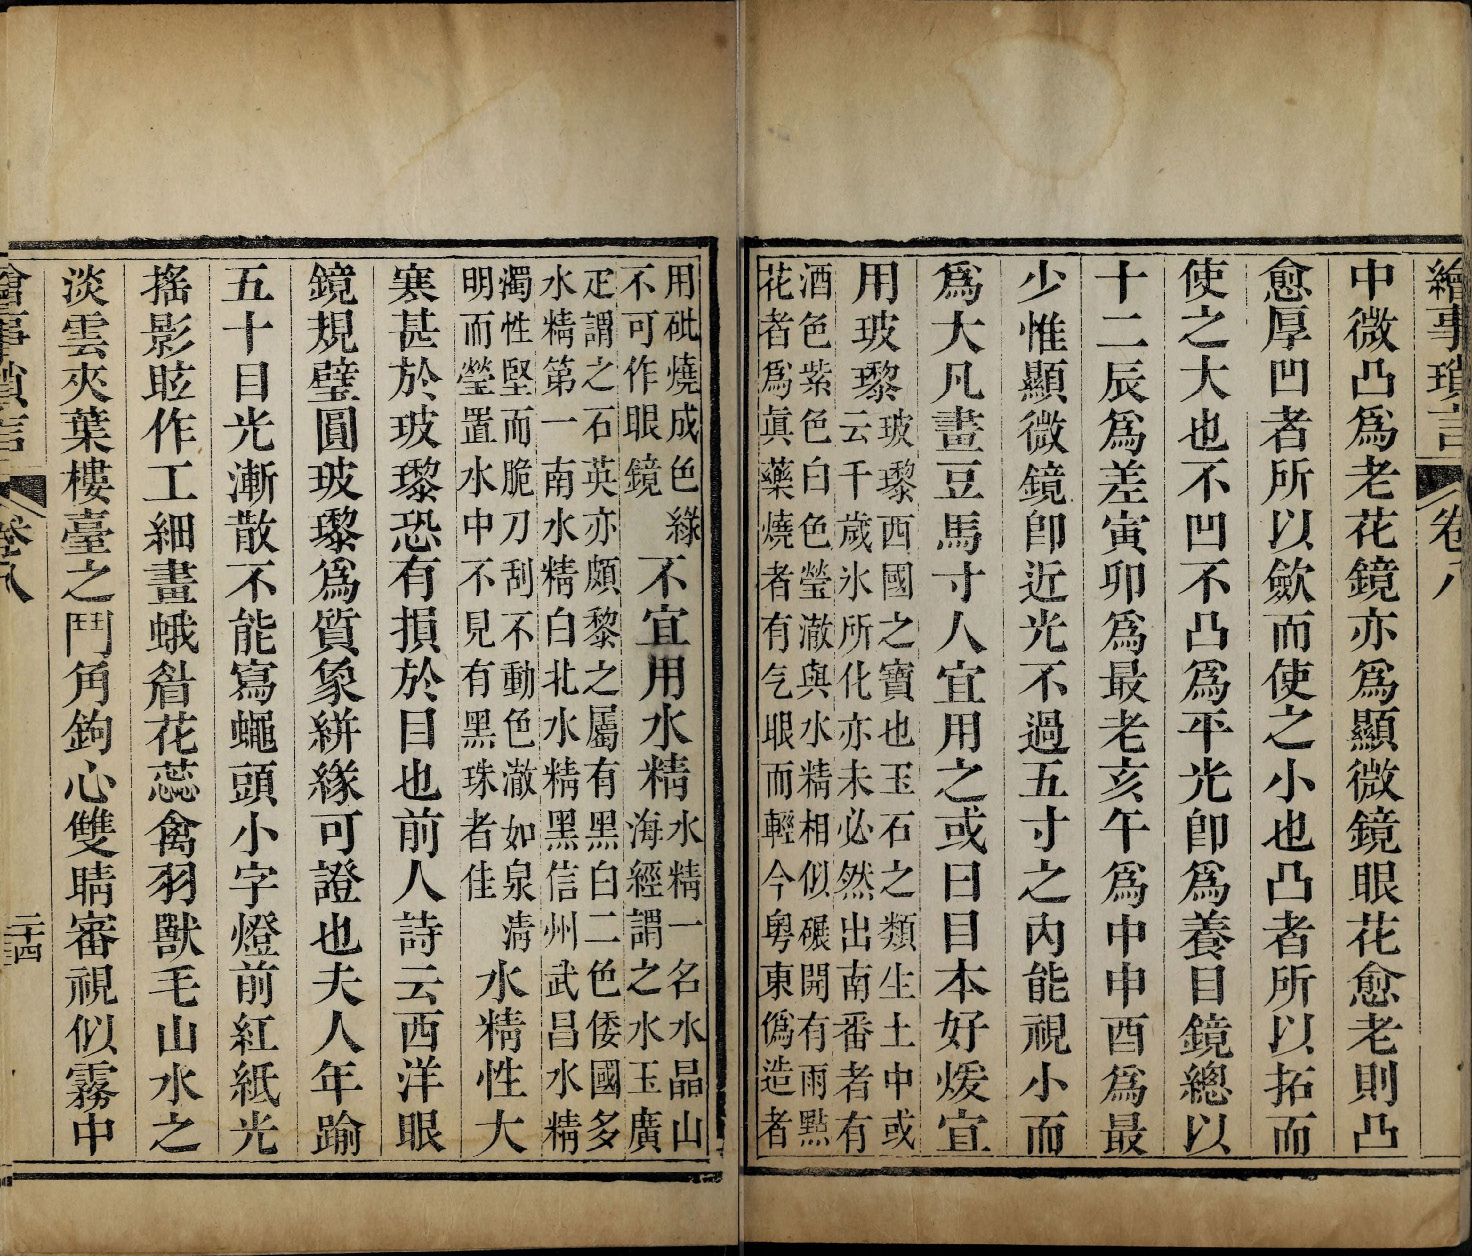 繪事瑣言 卷八
中微凸爲老花鏡亦爲顯微鏡眼花愈老則凸
愈厚凹者所以歛而使之小也凸者所以拓而
使之大也不凹不凸爲平光卽爲養目鏡總以
十二辰爲差寅卯爲最老亥午爲中申酉爲最
少惟顯微鏡卽近光不過五寸之內能視小而
爲大凡畫豆馬寸人宜用之或曰目本好煖宜
用玻瓈
玻瓈西國之寶也玉石之類生土中或
云千歲氷所化亦未必然出南番者有
酒色紫色白色瑩澈與水精相似碾開有雨點
花者爲眞藥燒者有气眼而輕今粵東僞造者
用砒燒成色綠
不可作眼鏡
不宜用水精
水精一名水晶山
海經謂之水玉廣
疋謂之石英亦頗黎之屬有黑白二色倭國多
水精第一南水精白北水精黑信州武昌水精
濁性堅而脆刀刮不動色澈如泉淸
明而瑩置水中不見有黑珠者佳
水精性大
寒甚於玻瓈恐有損於目也前人詩云西洋眼
鏡規璧圓玻瓈爲質象絣緣可證也夫人年踰
五十目光漸散不能寫蠅頭小字燈前紅紙光
搖影眩作工細畫蛾眉花蕊禽羽獸毛山水之
淡雲夾葉樓臺之鬥角鉤心雙睛審視似霧中
繪事瑣言 卷八 二十四